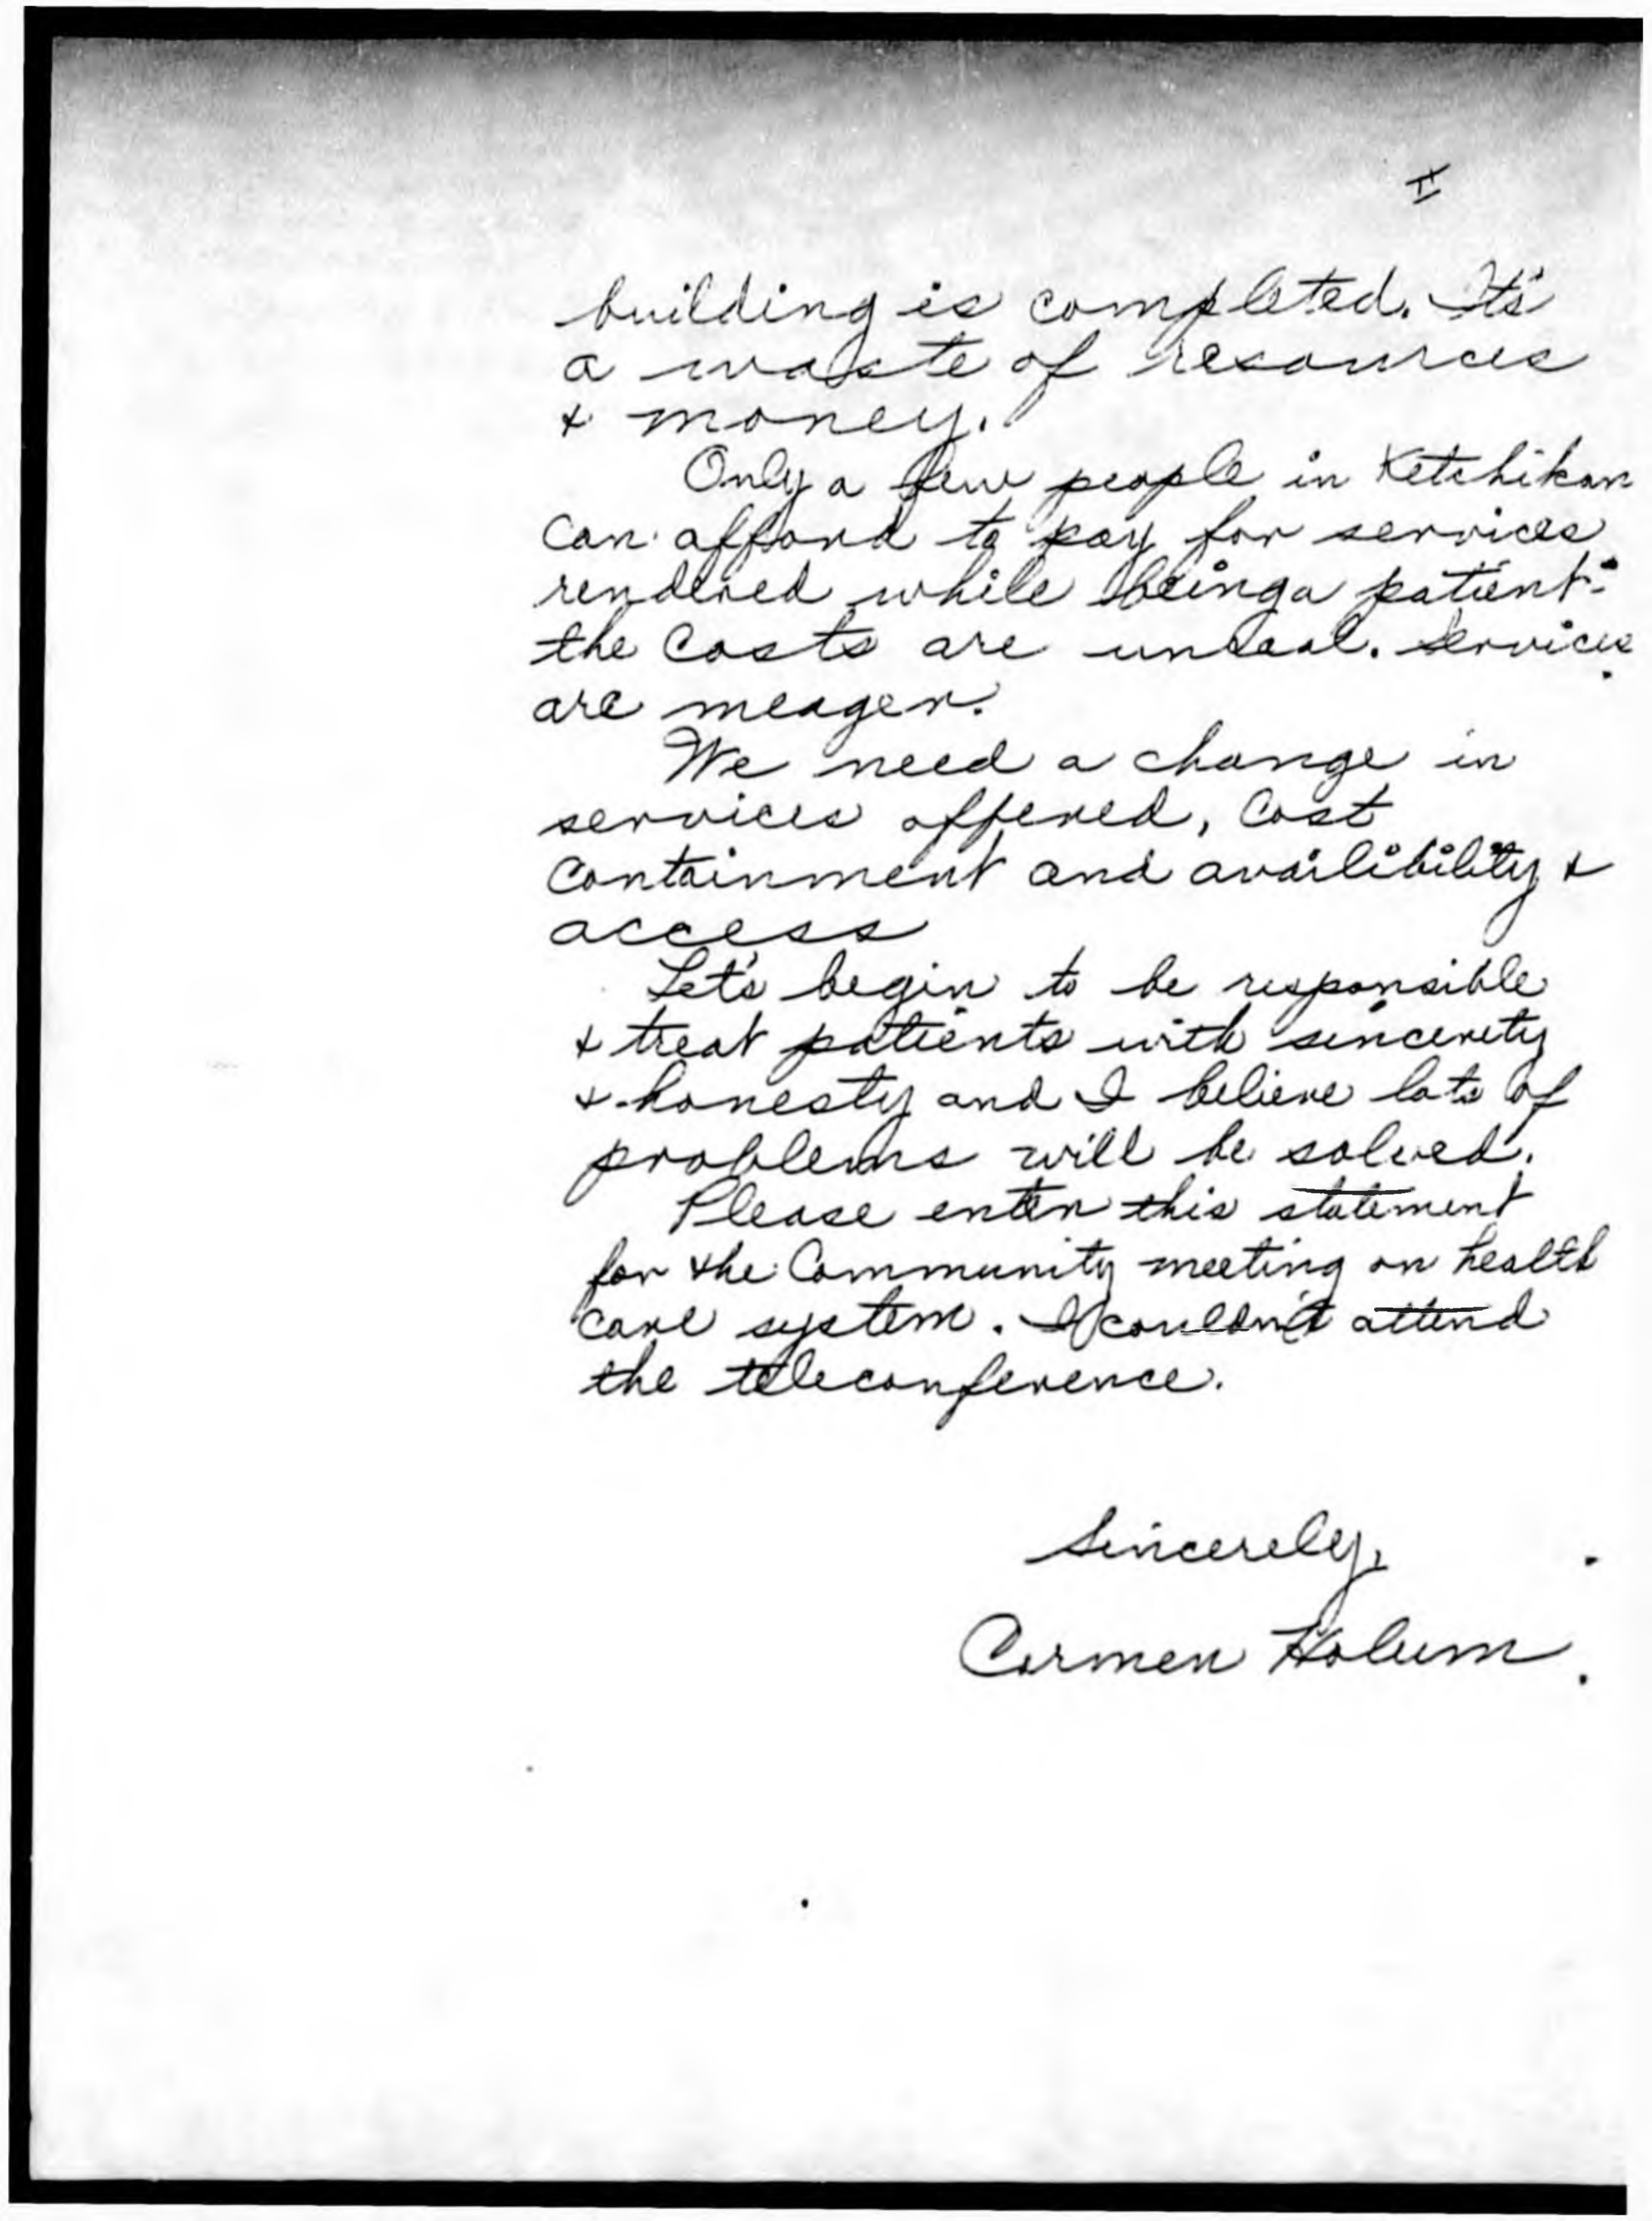 II
building is completed. It's
a waste of resources
& money.
Only a few people in Ketchikan
can afford to pay for services
rendered while being a patient -
the costs are unreal. Services
are meager.
We need a change in
services offered, cost
containment and availibility &
access
Let's begin to be responsible
& treat patients with sincerity
& honesty and I believe lots of
problems will be solved.
Please enter this statement
for the Community meeting on health
care system. I couldn't attend
the teleconference.
Sincerely,
Carmen Holum